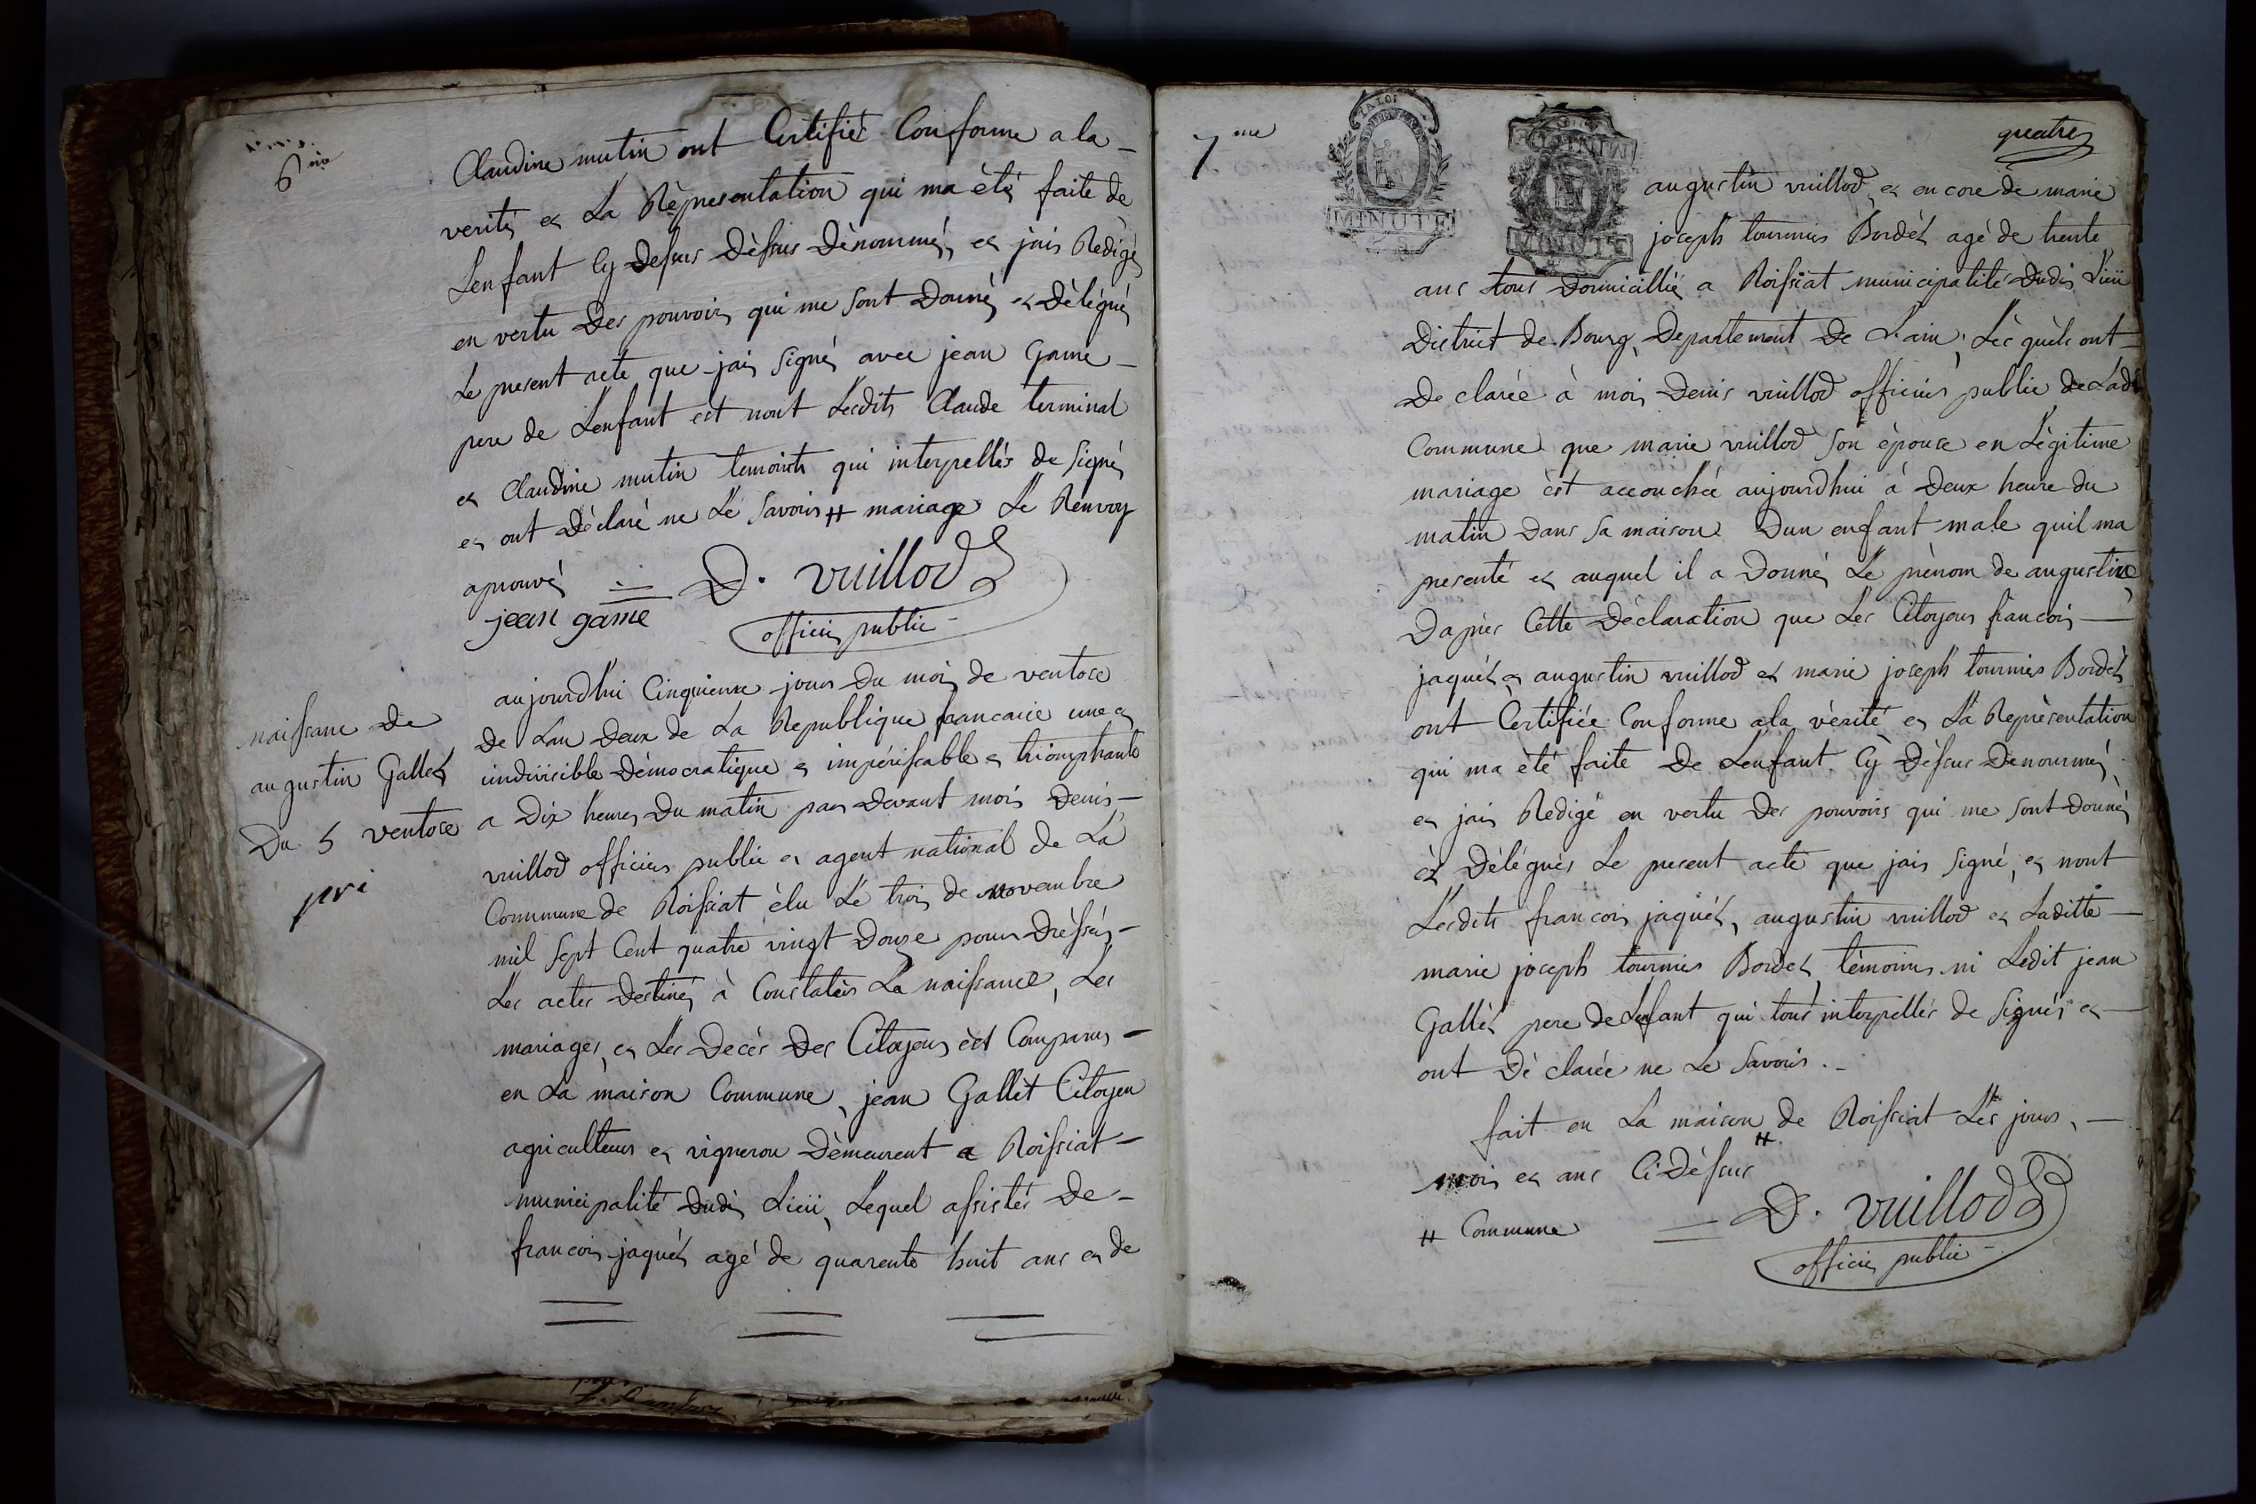 6me
Claudine mutin ont Certifiét Conforme a la
verité et La Représentation qui ma été faite de
Lenfant Cy Dessus Dèssus Dènommé, et jais Redigé
en vertu Des pouvoirs qui me sont Donné, et Délégué
Le present acte que jais Signé avec jean Game
pere de Lenfant est nont Lesdits Claude terminal
et Claudine mutin temoints qui interpellés de Signé
et ont Déclaré ne Lé Savoir # mariage Le Renvoy
aprouvé = D. vuillod
jean game
officier public
naissance de
augustin Gallet
Du 5 ventose
pri
aujourdhui Cinquieme jour Du mois de ventose
De Lan Deux de La Republique francaise une et
indivisible Démocratique et impérissable et triomphante
a Dix heures Du matin par Devant mois Denis
vuillod officier public et agent national de La
Commune de Roissiat élu Lé trois de novembre
mil Sept Cent quatre vingt Douze pour Dréssér
Les actes Destiné, à Constatér La naissance, Les
mariages, et Les Decès Des Citoyens èst Comparus
en La maison Commune, jean Gallèt Citoyen
agriculteur et vigneron Dèmeurent a Roissiat
municipalité Dudis Lieu, Lequel assistés De
francois jaquét agé de quarente huit ans et de
7me
LA LOI
MINUTE
MINUTE
MINUTE
quatre
augustin vuillod, et encore de marie
joseph tournier Bordét agé de trente
ans tous Domicilliés a Roissiat municipalité Dudis Lieu
District de Bourg, Departement De Lain, Lèsquèls ont
Declarée à mois Denis vuillod officier public de Ladi
Commune que marie vuillod son épouse en Légitime
mariage èst accouchée aujourdhui à Deux heure du
matin Dans Sa maison Dun enfant male quil ma
presenté et auquel il a Donné, Le prènom de augustin
Daprès Cette Dèclaration que Les Citoyens francois
jaquét et augustin vuillod et marie joseph tournier Bordét
ont Certifiée Conforme a la vèrité et La Représentation
qui ma été faite De Lenfant Cy Dèssus Dènommé,
et jais Redigé en vertu Des pouvoirs qui me sont Donné
èt Délégués Le present acte que jais Signé, et nont
Lesdits francois jaquét, augustin vuillod et Laditte
marie joseph tournier Bordét, tèmoins ni Ledit jean
Gallèt pere de Lenfant qui tous interpellés de Signér et
ont Dè clarée ne Le Savoir.
fait en La maison # de Roissiat Les jours,
mois et ans Ci Dèssus
# Commune = D. vuillod
officier public